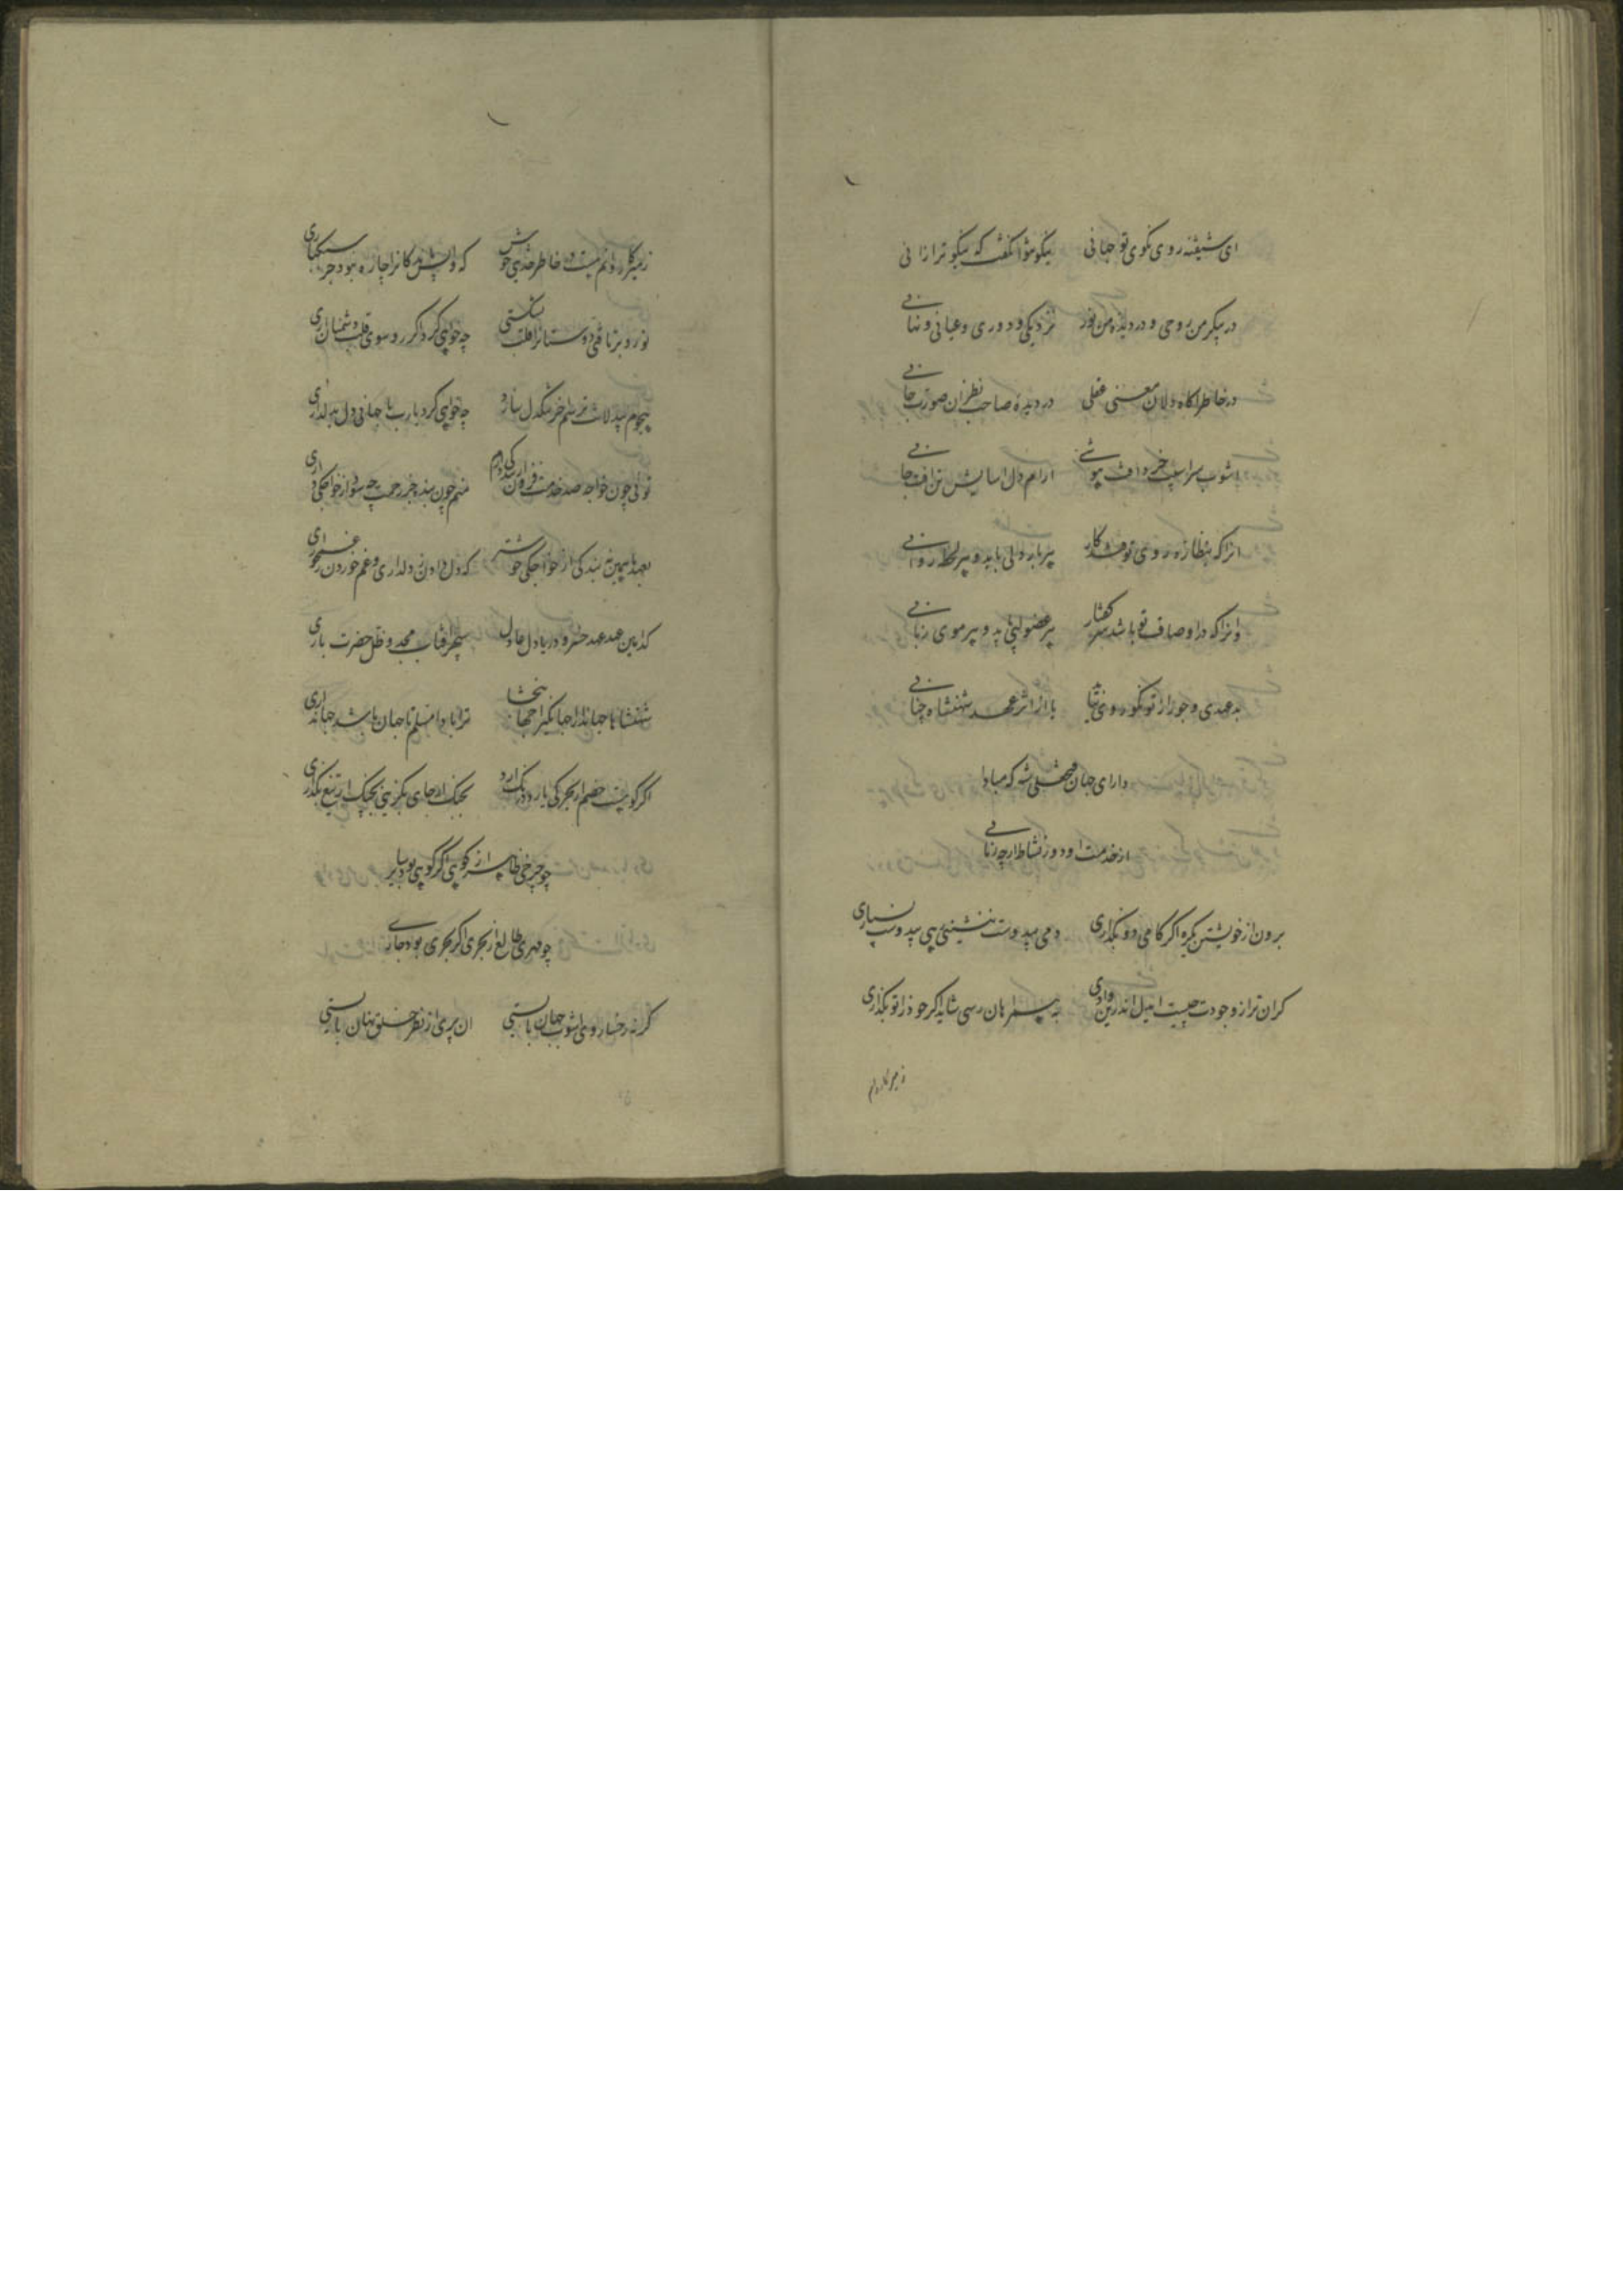 ای شیفته روی نکوی تو جهانی نیکو نتوان گفت که نیکوتر از انی
در پیکر من روحی و در دیده من نور نزدیکی و دوری و عیانی و نهانی
در خاطر اکاه دلان معنی عقلی در دیده صاحب نظران صورت جانی
اشوب سر اسیب خرد افت هوشی ارام دل اسایش تن افت جانی
انرا که بنظاره روی تو فتد کار هر بار دلی باید و هر لحظه روانی
وانرا که در اوصاف تو باشد سر گفتار هر عضو لبی باید و هر موی زبانی
بدعهدی و جور از تو نکو روی
یا از اثر عهد شهنشاه جهانی
دارای جهان فتحعلی شه که مبادا
از خدمت او دور نشاط ارچه زمانی
برون از خویشتن یکره اگر کامی دو بگذاری دمی بیدوست ننشینی پی بیدوست نسپاری
گران تر از وجودت چیست ای دل اندرین وادی به همراهان رسی شاید اگر خود را تو بگذاری
ز میر کاروانم نیست در خاطر خوش که واپس ماندگانرا چاره نبود جز سبکباری
تو رو برتافتی از دوستان قلب بشکستی چه خواهی کرد اگر رو سوی قلب دشمنان اری
هجوم بیدلانت ترسم اخر سنگدل سازد چه خواهی کرد یارب با جهانی دل به دلداری
توئی چون خواجه صد خدمت فزون از بندگی دارم منم چون بنده جز رحمت چه سود از خواجگی داری
بعهد ما همین بندگی از خواجگی خوشتر که دل دادن ز دلداری و غم خوردن ز غمخواری
که این عهد عهد خسرو دریا دل عادل سپهر افتاب مجد و ظل حضرت باری
شهنشاها جهاندارا جهانگیرا جهانبخشا ترا بادا مسلم تا جهان باشد جهانداری
اگر کویت خصم از بحر کی یارد درنگ ارد بجنک از جای بگزینی بجنک ار تیغ بگذاری
چو چرخی ظاهر از کوهی اگر کوهی بود پویا
چو مهری طالع از بحری اگر بحری بود جاری
گر نه رخسار وی اشوب جهان بایستی ان پری از نظر خلق نهان بایستی
ز میر کاروانم